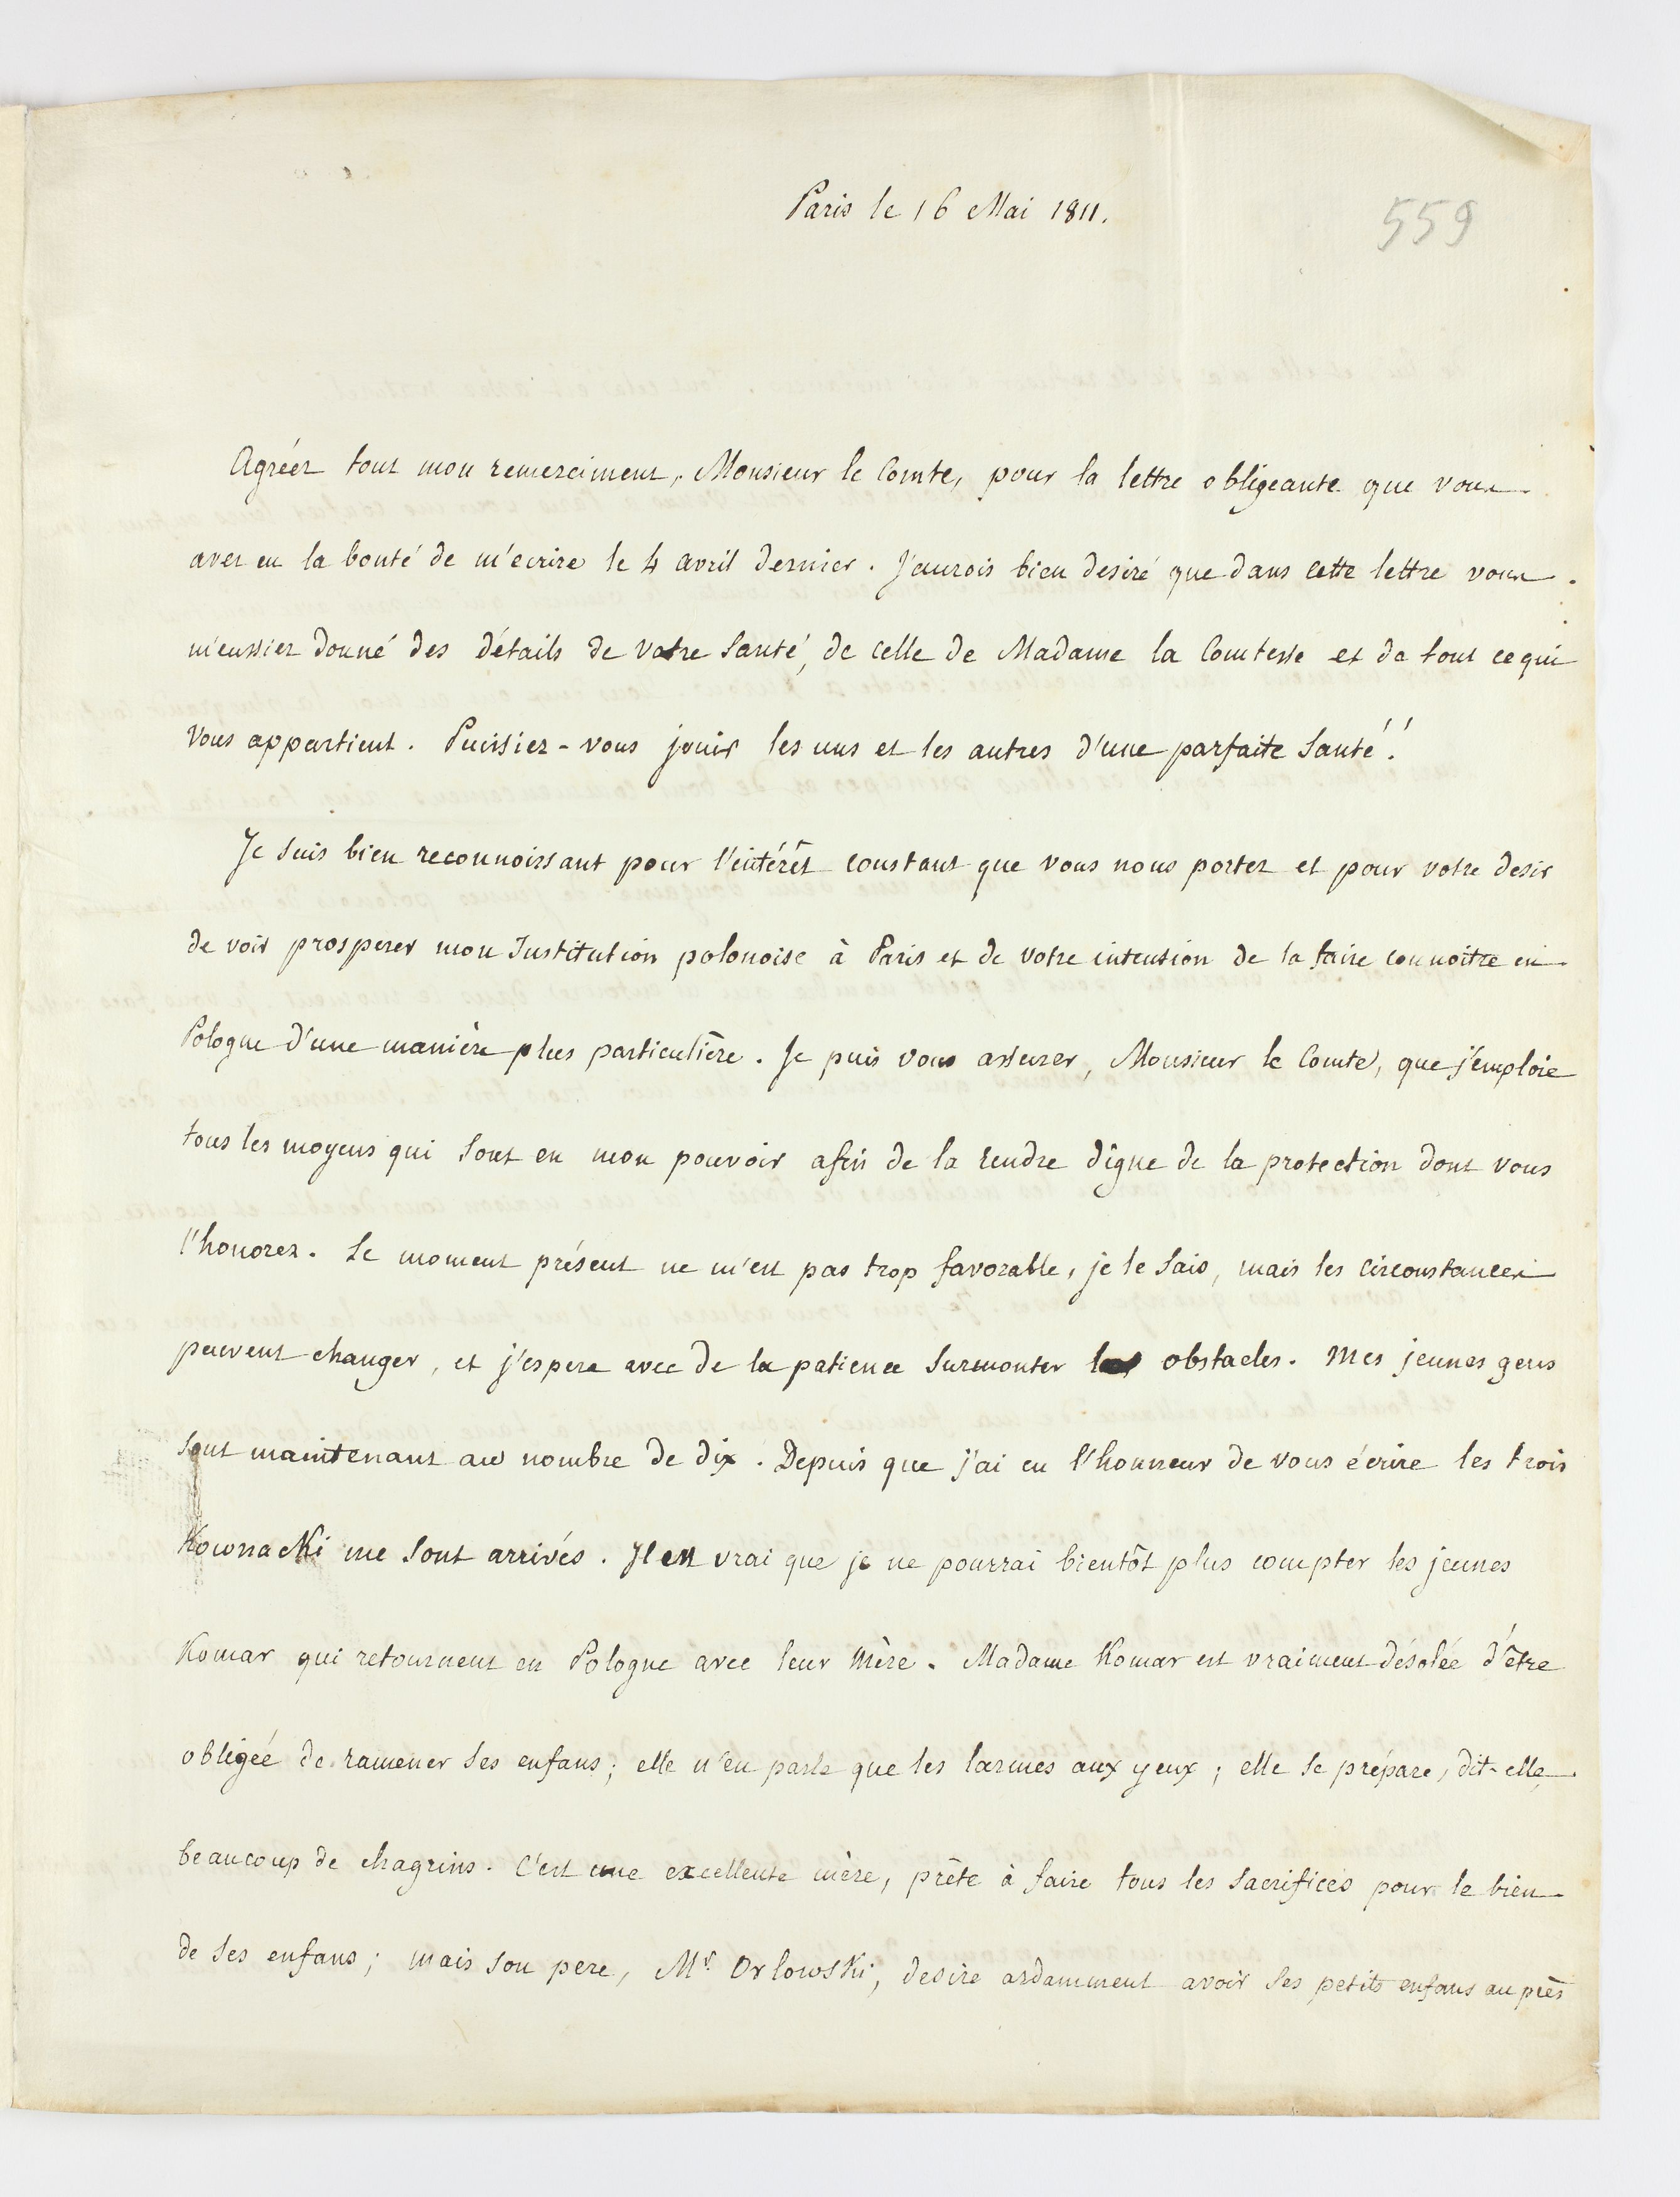 Paris le 16 Mai 1811.
559
Agréez tout mon remerciment, Monsieur le Comte, pour la lettre obligeante que vous
avez eu la bonté de m'ecrire le 4 avril dernier. J'aurois bien desiré que dans cette lettre vous
m'eussiez donné des détails de votre santé, de celle de Madame la Comtesse et de tout ce qui
vous appartient. Puissiez-vous jouir les uns et les autres d'une parfaite santé!
Je suis bien reconnoissant pour l'intérêt constant que vous nous portez et pour votre desir
de voir prosperer mon Institution polonoise à Paris et de votre intention de la faire connoître en
Pologne d'une manière plus particulière. Je puis vous assurer, Monsieur le Comte, que j'emploie
tous les moyens qui sont en mon pouvoir afin de la rendre digne de la protection dont vous
l'honorez. Le moment présent ne m'est pas trop favorable, je le sais, mais les circonstances
peuvent changer, et j'espere avec de la patience surmonter les obstacles. Mes jeunes gens
sont maintenant au nombre de dix. Depuis que j'ai eu l'honneur de vous écrire les trois
Kownacki me sont arrivés. Il est vrai que je ne pourrai bientôt plus compter les jeunes
Komar qui retournent en Pologne avec leur mère. Madame Komar est vraiment désolée d'être
obligée de ramener ses enfans; elle n'en parle que les larmes aux yeux; elle se prépare, dit-elle,
beaucoup de chagrins. C'est une excellente mère, prête à faire tous les sacrifices pour le bien
de ses enfans; mais son pere, Mr. Orlowski, desire ardamment avoir ses petits enfans auprès